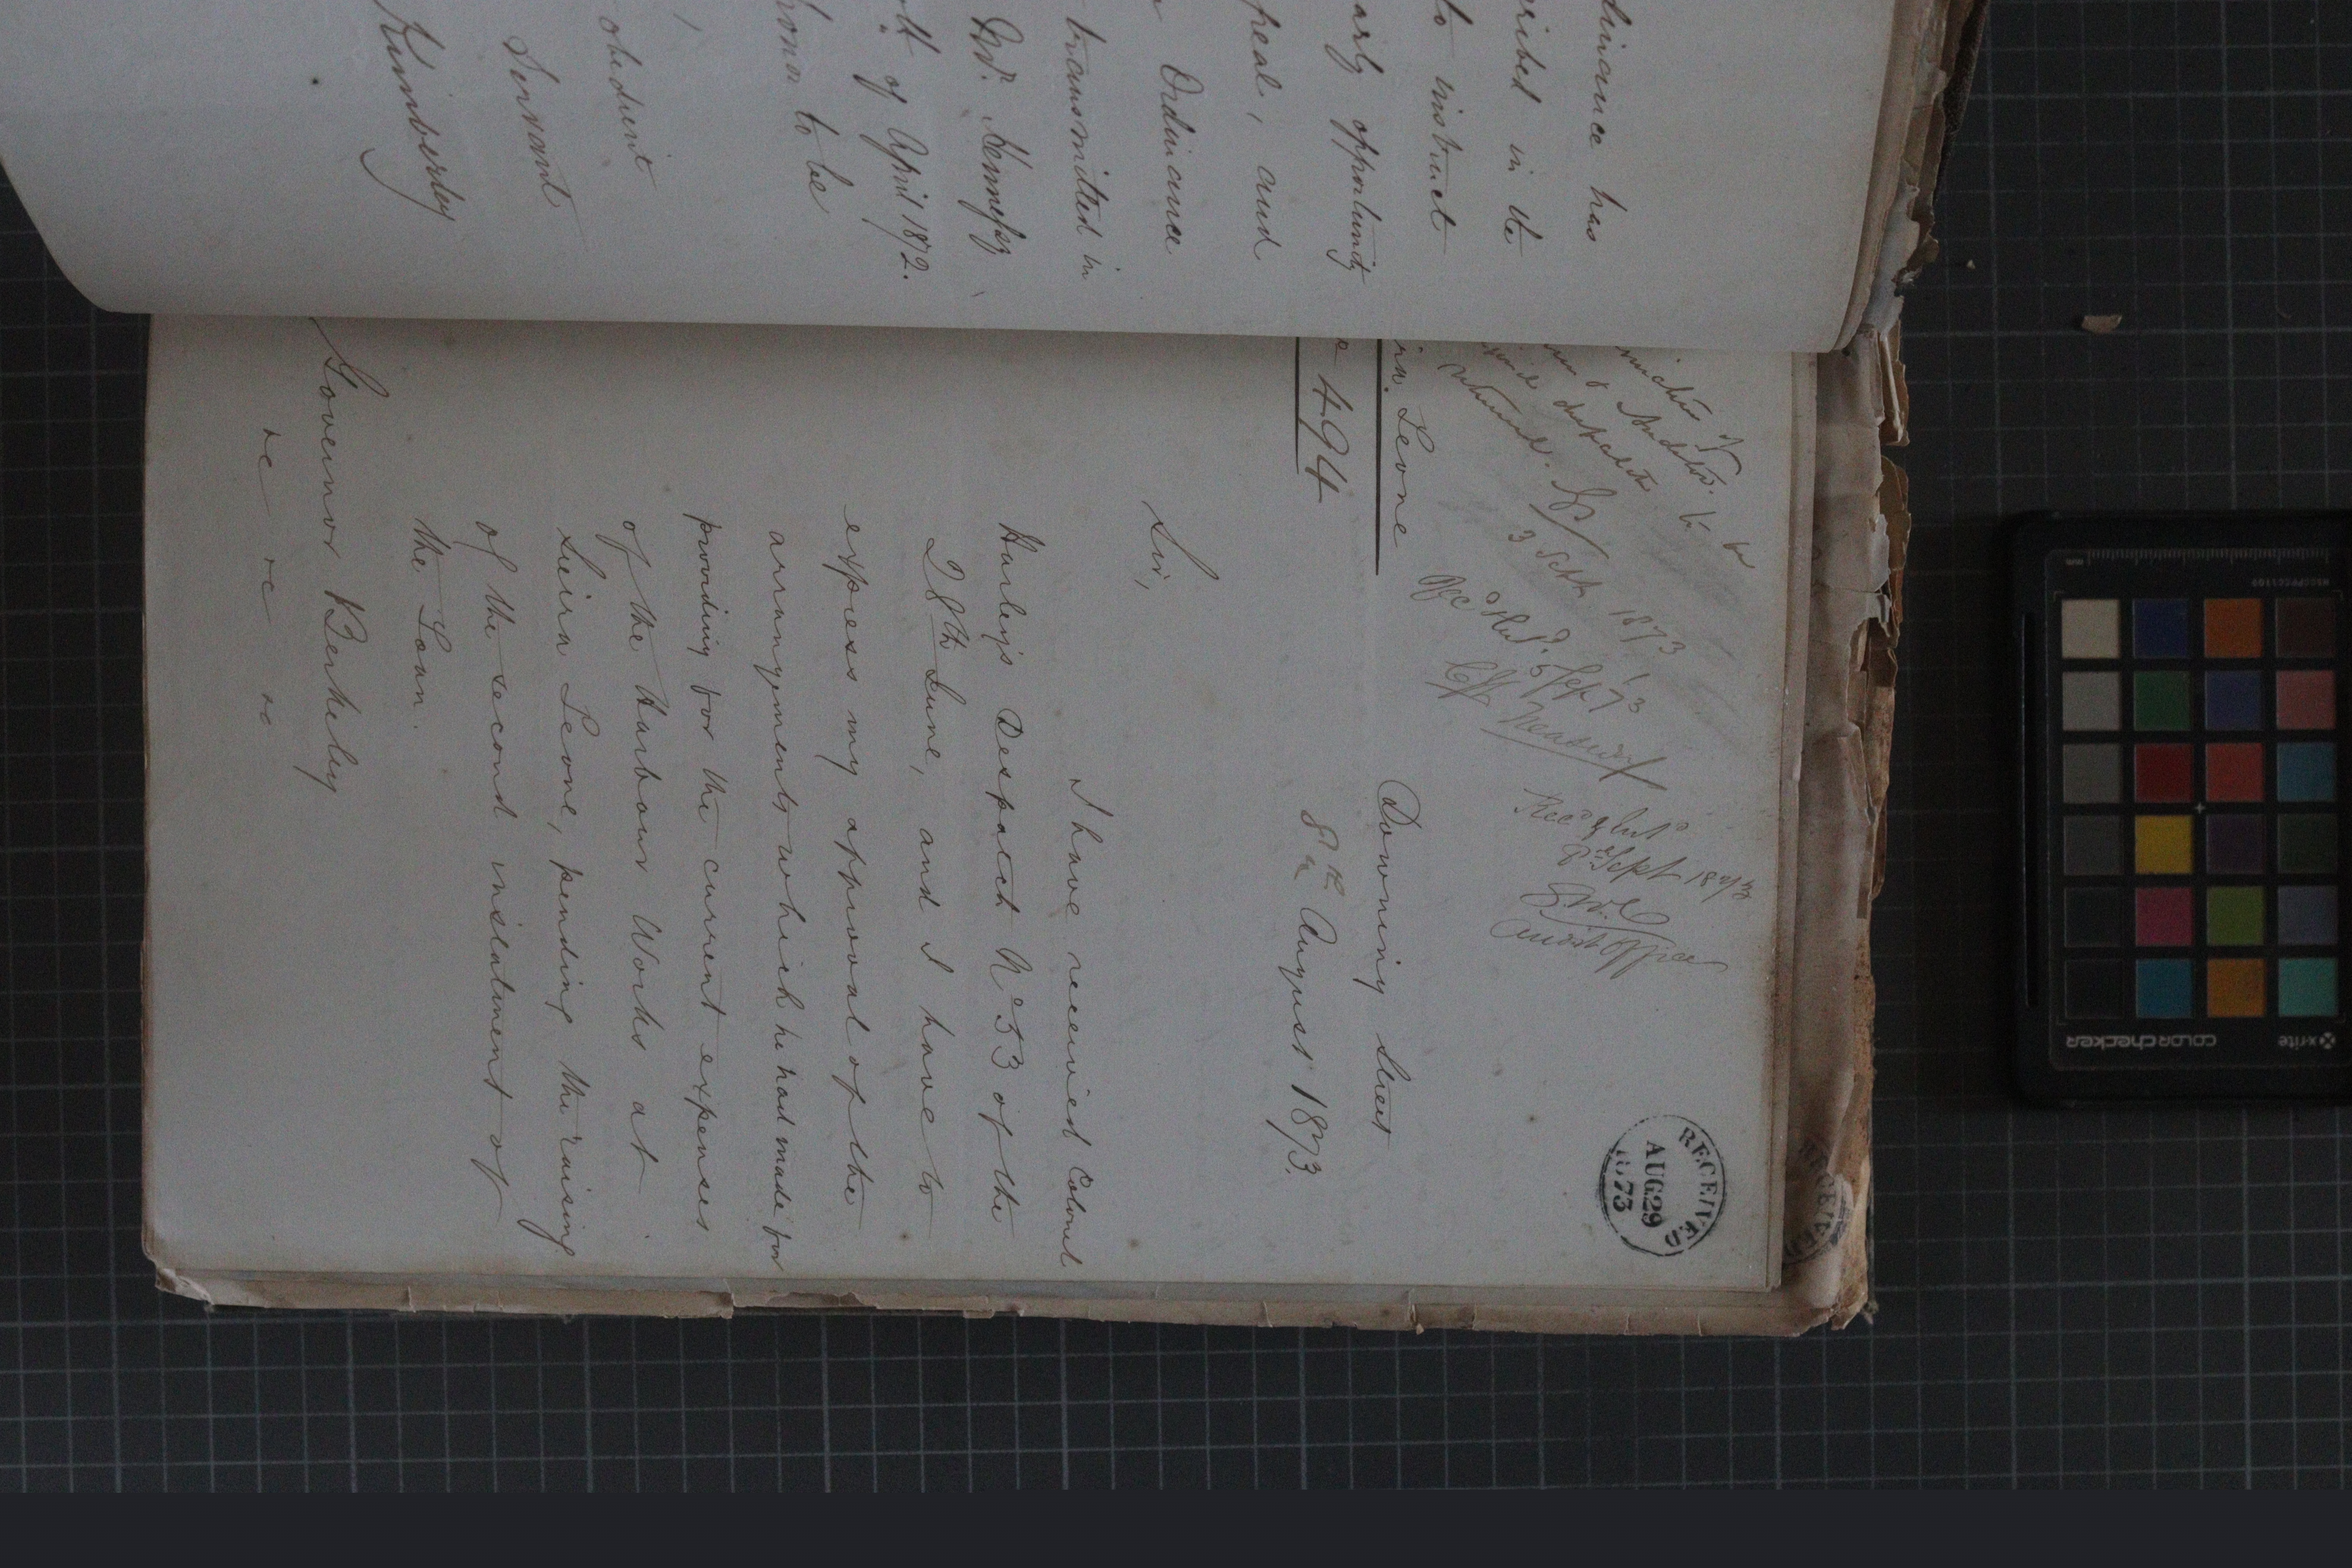 dinance has
cribed in the
to instruct
arly opportunity
peal, and
Ordinance
transmitted in
Kennessy
of April 1872.
honor to be
obedient
Servant
Kimberley
RECEIVED
AUG 29
1873
3 Sept 1873
Rec^d & Ret^d
5/Sep/73
Treasury
Rec^d & Ent^d
8 Sept 1873
Audit Office
Leone
494
Downing Street
8th August 1873.
Sir,
I have received Colonel
Harley's Despatch No 53 of the
28th June, and I have to
express my approval of the
arrangements which he had made for
providing for the current expenses
of the Harbour Works at
Sierra Leone, pending the raising
of the second instalment of
the Loan.
Governor Berkeley
&c &c &c
xrite
colorchecker